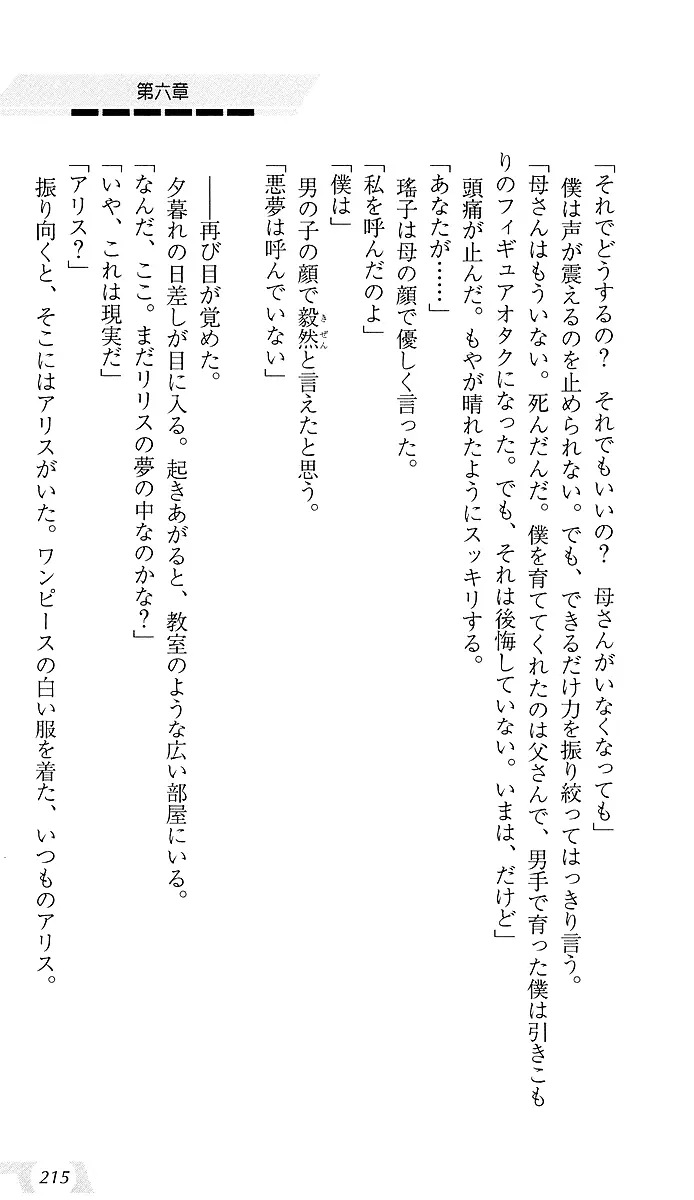 第六章
「それでどうするの？　それでもいいの？　母さんがいなくなっても」
　僕は声が震えるのを止められない。でも、できるだけ力を振り絞ってはっきり言う。
「母さんはもういない。死んだんだ。僕を育ててくれたのは父さんで、男手で育った僕は引きこも
りのフィギュアオタクになった。でも、それは後悔していない。いまは、だけど」
　頭痛が止んだ。もやが晴れたようにスッキリする。
「あなたが……」
　瑤子は母の顔で優しく言った。
「私を呼んだのよ」
「僕は」
　男の子の顔で毅然と言えたと思う。
きぜん
「悪夢は呼んでいない」
　――再び目が覚めた。
　夕暮れの日差しが目に入る。起きあがると、教室のような広い部屋にいる。
「なんだ、ここ。まだリリスの夢の中なのかな？」
「いや、これは現実だ」
「アリス？」
　振り向くと、そこにはアリスがいた。ワンピースの白い服を着た、いつものアリス。
215